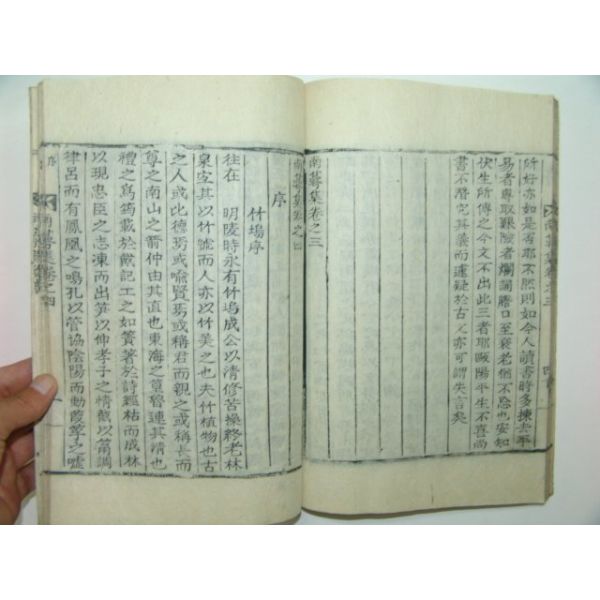 所好亦如是否耶不然則如今人讀書時多揀去平
易者專取艱險者爛誦膾口至衰老猶不忘也安知
伏生所傳之今文不出此三者耶歐陽平生不喜尚
書不潛究其義而遽疑於古文亦可謂失言矣
南藥集卷之三
南藥集卷之四
序
竹塢序
往在 明陵時永有竹塢成公以清修苦操終老林
泉室其以竹號而人亦以竹美之也夫竹植物也古
之人或比德焉或喻賢焉或稱君而親之或稱長而
尊之南山之箭仲由其直也東海之篁魯連其清也
禮之爲筠載於戴記工之如簀著於詩經枯而成林
以現忠臣之志凍而出笋以伸孝子之情截以筩調
律呂而有鳳凰之鳴孔以管協陰陽而動葭莩之噓